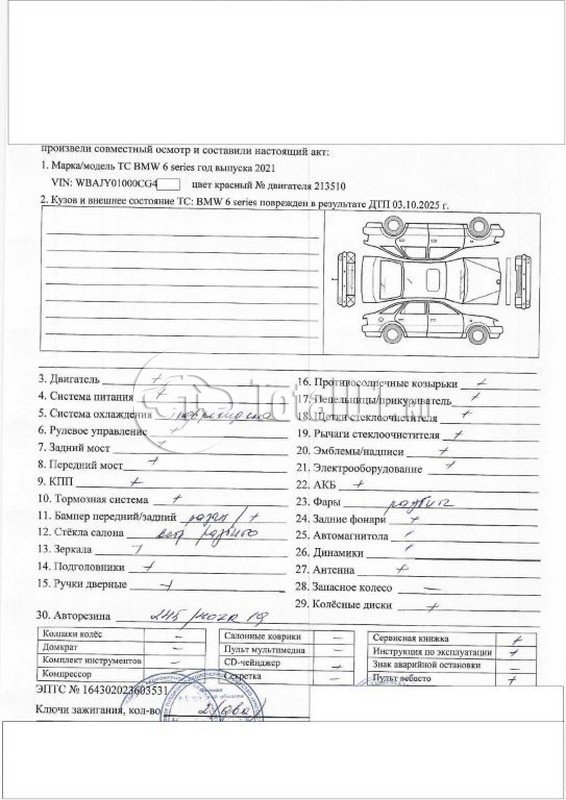 произвели совместный осмотр и составили настоящий акт:
1. Марка/модель ТС BMW 6 series год выпуска 2021
VIN: WBAJY01000CG4 цвет красный № двигателя 213510
2. Кузов и внешнее состояние ТС: BMW 6 series поврежден в результате ДТП 03.10.2025 г.
3. Двигатель +
4. Система питания +
5. Система охлаждения
6. Рулевое управление +
7. Задний мост +
8. Передний мост +
9. КПП +
10. Тормозная система +
11. Бампер передний/задний / +
12. Стёкла салона разбито
13. Зеркала
14. Подголовники +
15. Ручки дверные +
16. Противосолнечные козырьки +
17. Пепельницы/прикуриватель +
18. Щетки стеклоочистителя +
19. Рычаги стеклоочистителя +
20. Эмблемы/надписи +
21. Электрооборудование +
22. АКБ +
23. Фары разбиты
24. Задние фонари +
25. Автомагнитола +
26. Динамики +
27. Антенна +
28. Запасное колесо —
29. Колёсные диски +
30. Авторезина 245/ 19
Колпаки колёс —
Домкрат —
Комплект инструментов —
Компрессор —
Салонные коврики —
Пульт мультимедиа —
CD-чейнджер +
Секретка —
Сервисная книжка +
Инструкция по эксплуатации +
Знак аварийной остановки —
Пульт вебасто +
ЭПТС № 164302023603531
Ключи зажигания, кол-во 2 (два)